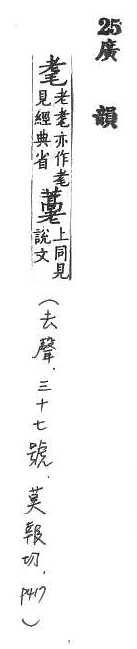 25 廣韻
耄 老耄亦作耄
見經典省
上同見
說文
(去聲．三十七號．莫報切．P417)